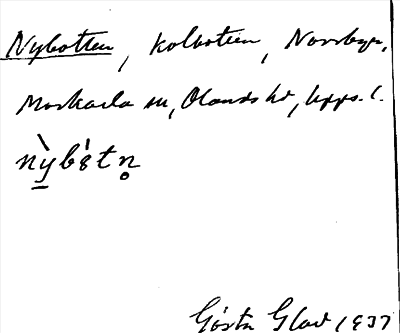 Nybotten, kolbotten, Norrbyn,
Morkarla sn, Olands hd, Upps. l.
Gösta Glad 1937